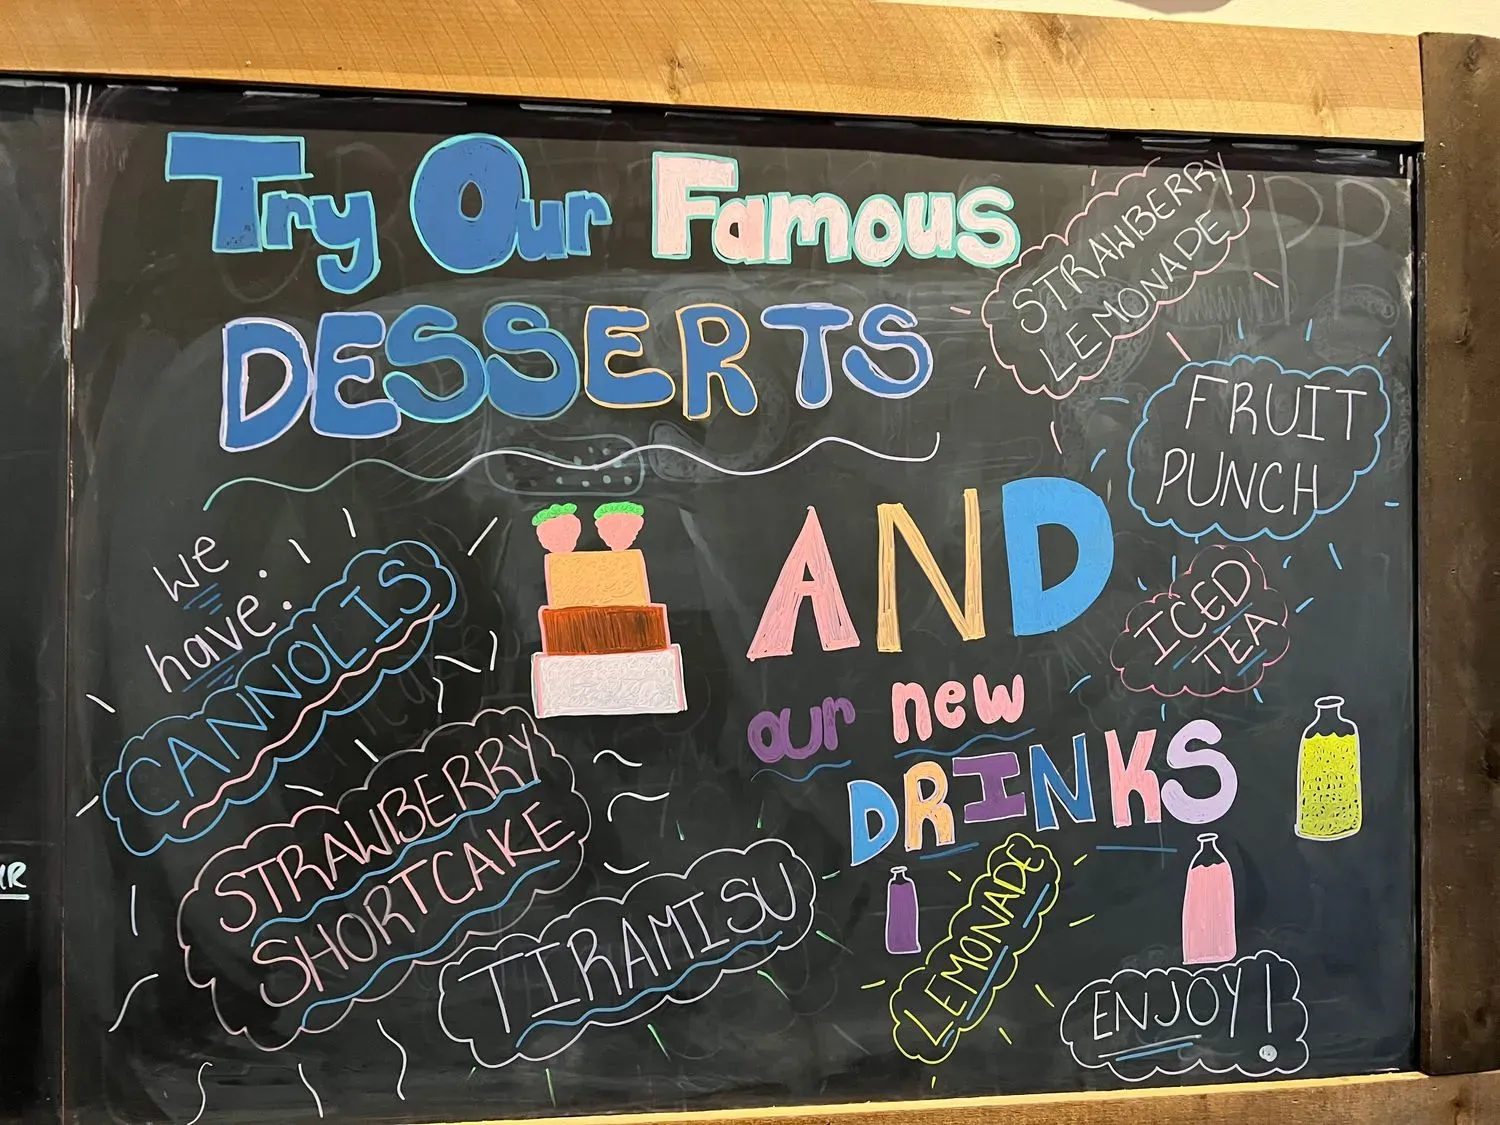 Try Our Famous
DESSERTS
We
have:
CANNOLIS
STRAWBERRY
SHORTCAKE
TIRAMISU
AND
our new
DRINKS
STRAWBERRY
LEMONADE
FRUIT
PUNCH
ICED
TEA
LEMONADE
ENJOY!